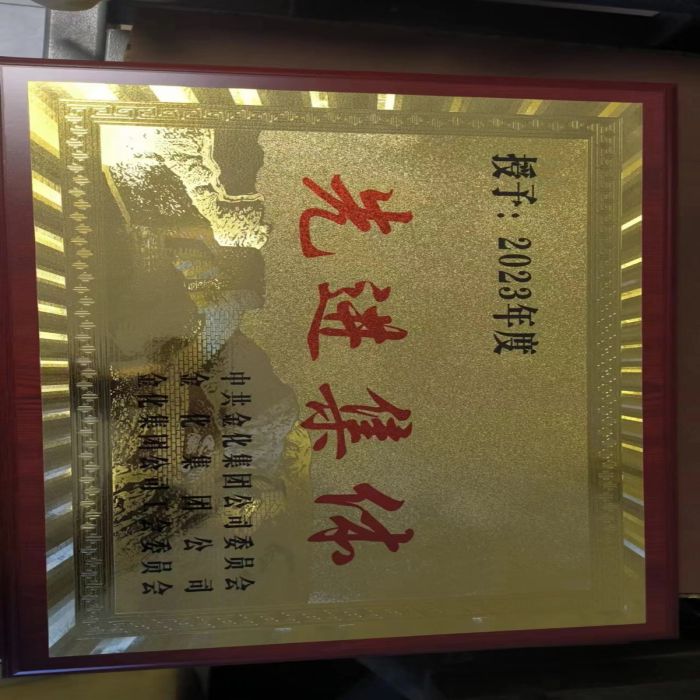 授予：2023年度
先进集体
中共金化集团公司委员会
金化集团公司
金化集团公司工会委员会